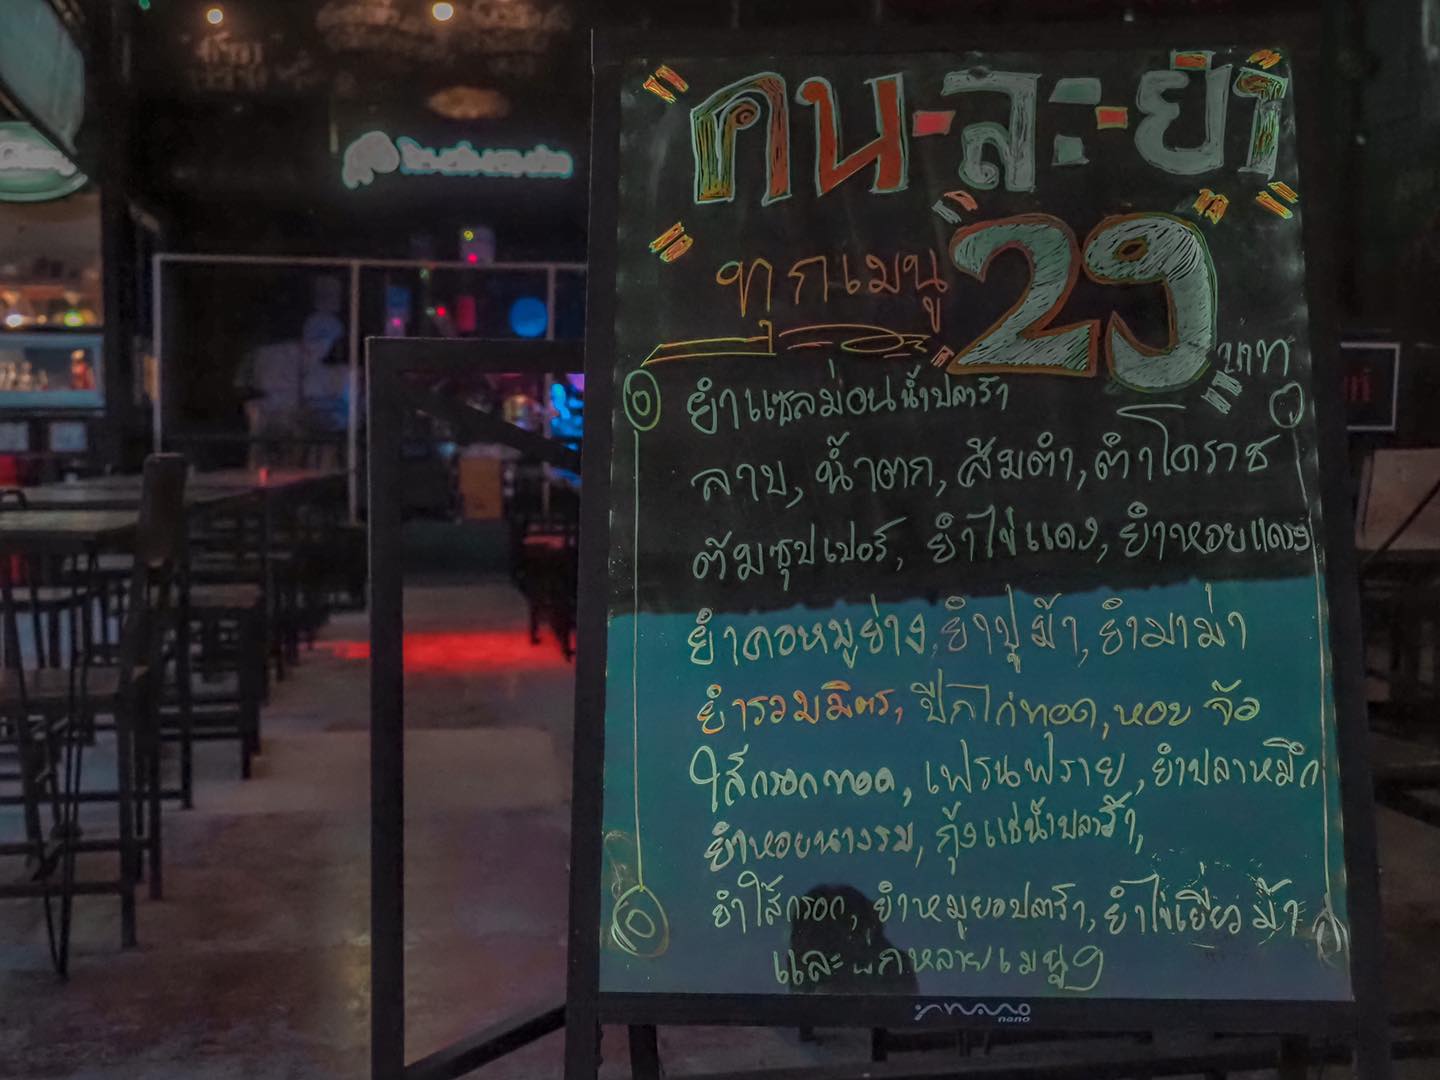 คน-ละ-ยำ
ทุกเมนู 29 บาท
ยำแซลม่อนน้ำปลาร้า
ลาบ, น้ำตก, ส้มตำ, ตำโคราช
ต้มซุปเปอร์, ยำไข่แดง, ยำหอยแครง
ยำคอหมูย่าง, ยำปูม้า, ยำมาม่า
ยำรวมมิตร, ปีกไก่ทอด, หอยจ้อ
ไส้กรอกทอด, เฟรนฟราย, ยำปลาหมึก
ยำหอยนางรม, กุ้งแช่น้ำปลาร้า,
ยำไส้กรอก, ยำหมูยอปลาร้า, ยำไข่เยี่ยวม้า
และ หลายเมนูๆ
nano